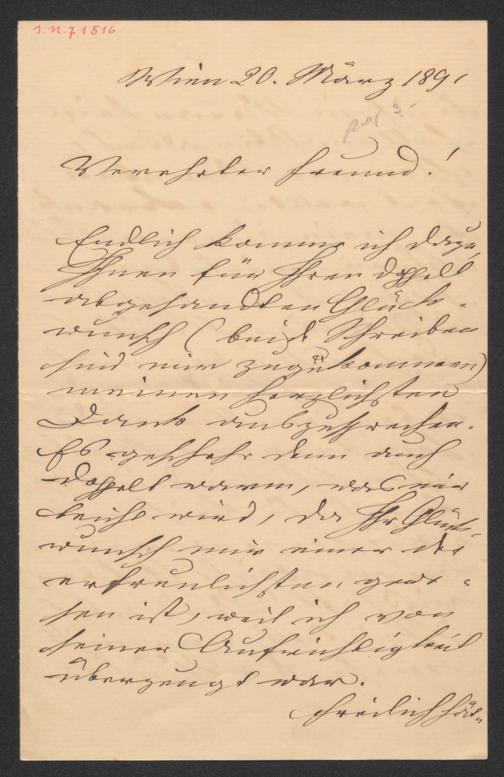 I.N. 71516
Wien 20. März 189
Verehrter Freund!
Endlich komme ich dazu,
Ihnen für Ihren doppelt
abgesandten Glück-
wunsch (beide Schreiben
sind mir zugekommen)
meinen herzlichsten
Dank auszusprechen.
Es geschah dann auch
doppelt warm, was mir
leicht wird, da Ihr Glück-
wunsch mir einer der
erfreulichsten gewe-
sen ist, weil ich von
seiner Aufrichtigkeit
überzeugt war.
Freilich